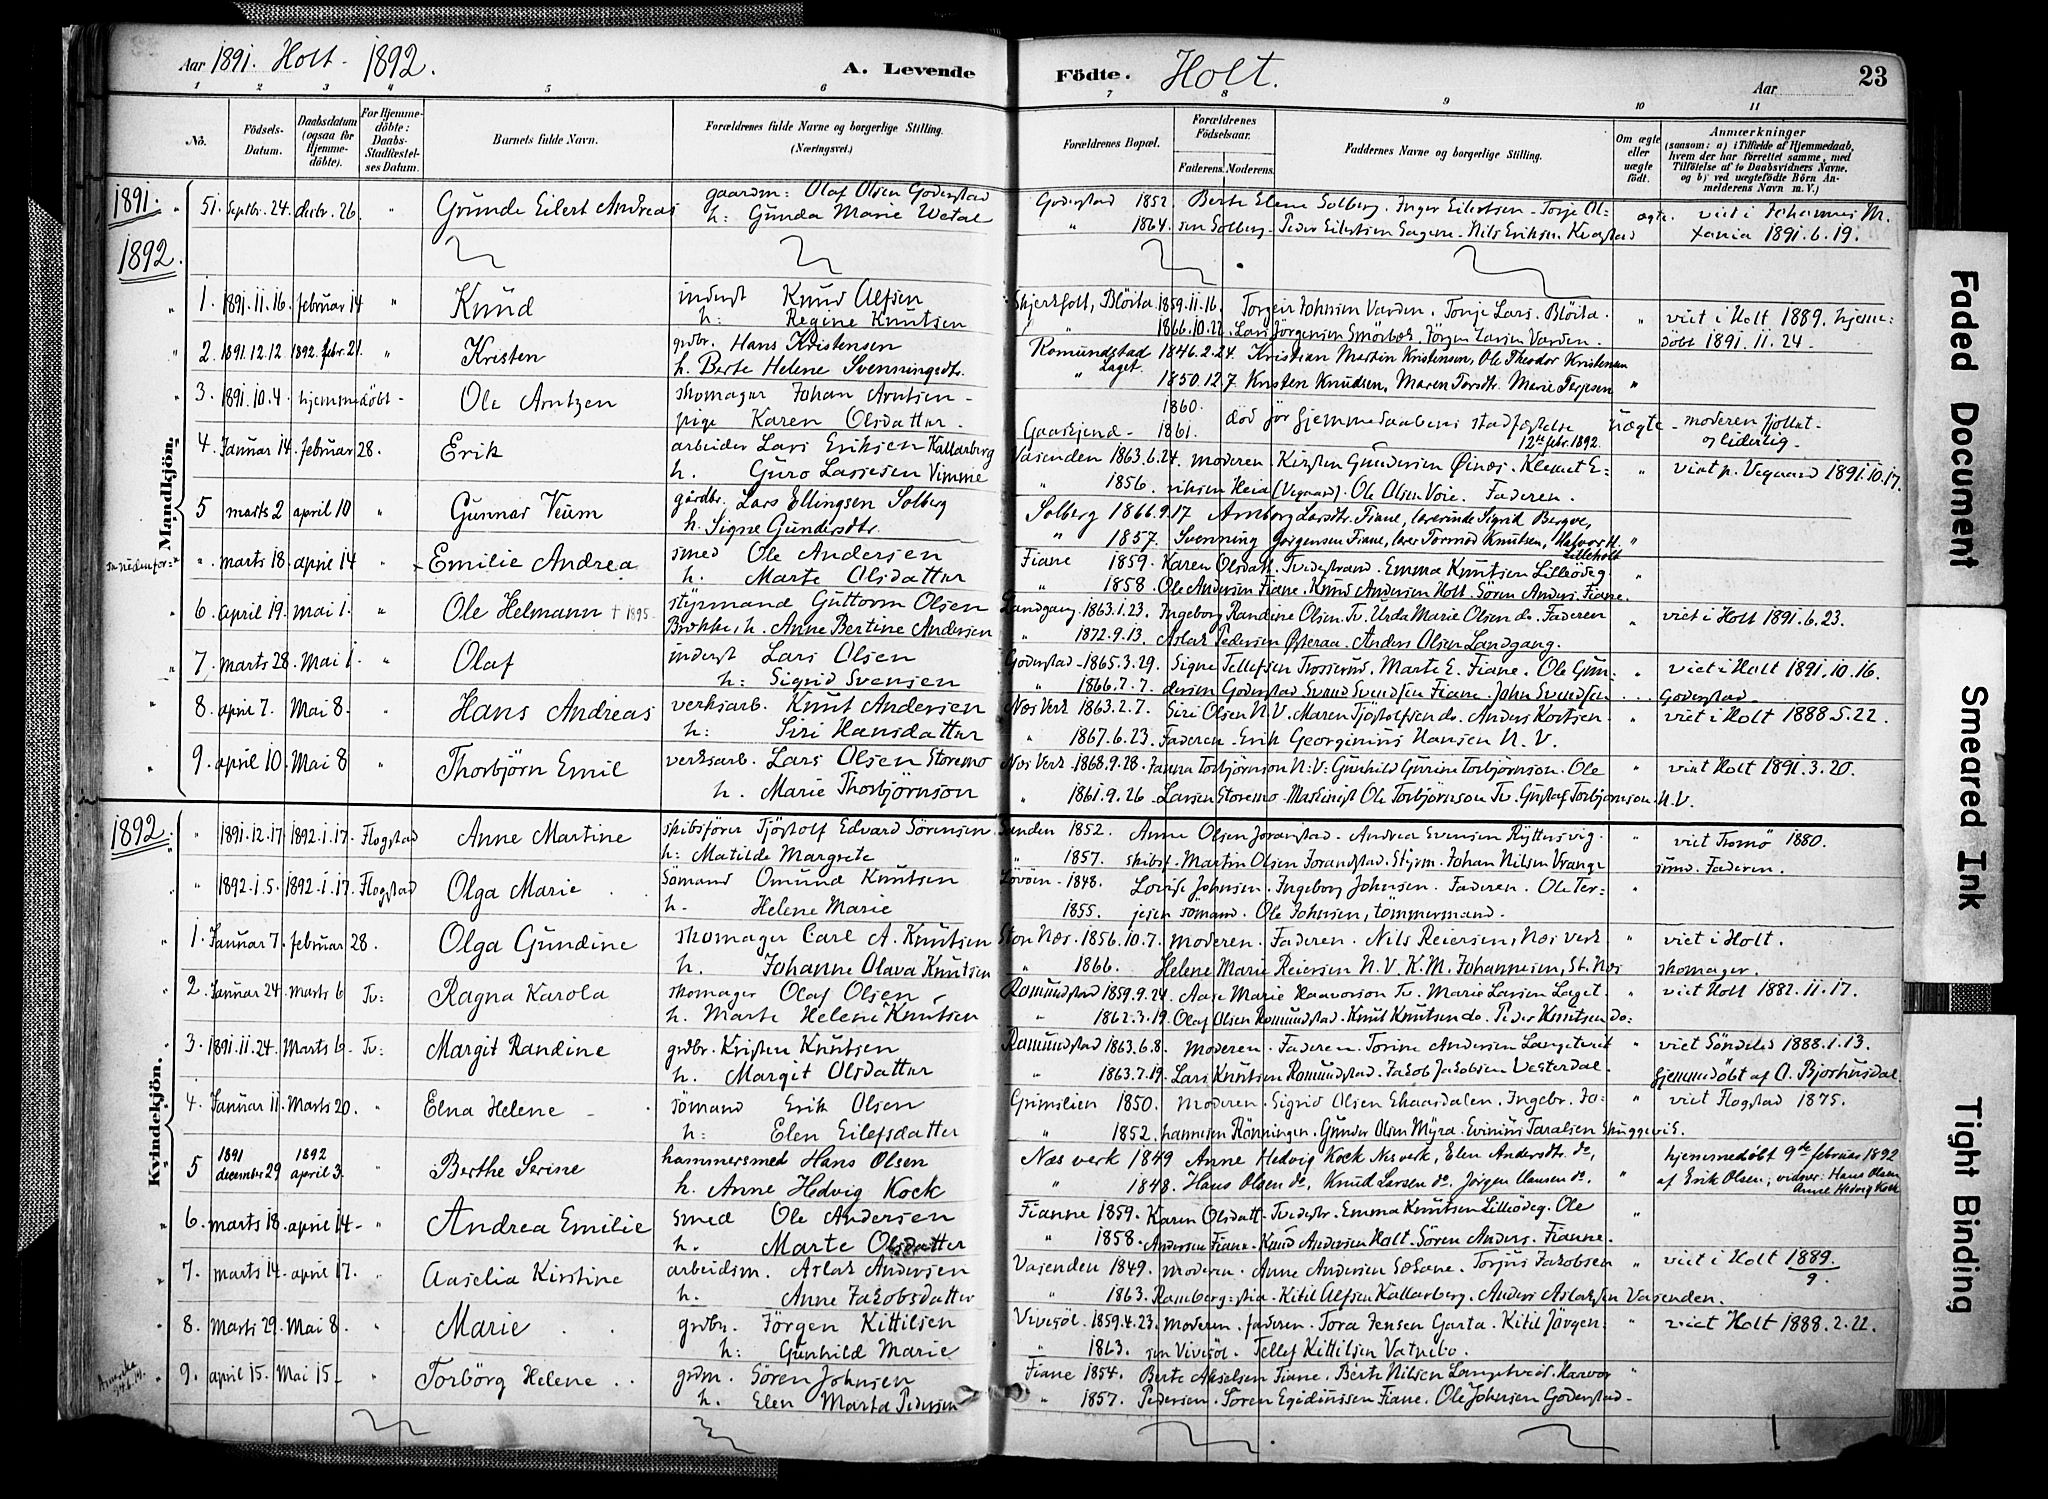 Aar 1891. Holt - 1892.
A. Levende Födte.
Holt.
Aar
23
1 2 3 4 5 6 7 8 9 10 11
No.
Födsels-Datum.
Daabsdatum (ogsaa for Hjemme-döbte).
For Hjemme-döbte: Daabs-Stadfæstel-ses Datum.
Barnets fulde Navn.
Forældrenes fulde Navne og borgerlige Stilling. (Næringsvei.)
Forældrenes Bopæl.
Forældrenes Födselsaar.
Faderens. Moderens.
Faddernes Navne og borgerlige Stilling.
Om ægte eller uægte født.
Anmærkninger (saasom: a) i Tilfælde af Hjemmedaab, hvem der har forrettet samme, med Tilföielse af to Daabsvidners Navne. og b) ved uægtefödte Börn An-melderens Navn m. V.)
1891. 51. Septbr. 24. decbr. 26. " Grunde Eilert Andreas gaardm: Olaf Olsen Goderstad Goderstad 1852. Berte Elene Solberg. Inger Eilertsen. Torje Ol- ægte. viet i Johannes M.
h: Gunda Marie Wetal " 1864. sen Solberg. Peder Eilertsen Sagene. Nils Eriksen Kvastad xania 1891.6.19.
1892.
Mandkjön.
1. 1891.11.16. februar 14 " Knud inderst Knud Alfsen Skjerkholt, Blöita 1859.11.16. Torgeir Johnsen Varden. Tonje Lars. Blöita. " viet i Holt 1889. hjem-
h: Regine Knutsen " 1866.10.22. Lars Jörgensen Smörbæk. Jörgen Larsen Varden. döbt 1891.11.24.
2. 1891.12.12 1892. febr. 21. " Kristen grdbr. Hans Kristensen Romundstad 1846.2.24. Kristian Martin Kristensen, Ole Theodor Kristensen
h. Berte Helene Svenningsdtr. " Laget. 1850.12.7. Kristen Knudsen, Maren Torsdtr. Marie Terjesen "
3. 1891.10.4. hjemmedöbt - Ole Arntzen skomager Johan Arntsen - 1860.
pige Karen Olsdatter. 1861. död för hjemmedaabens stadfæstelse 12te febr. 1892. uægte - moderen fjollet - og liderlig -
4. Januar 14. februar 28. Erik arbeider Lars Eriksen Kallarberg Vasenden 1863.6.24. moderen. Kirsten Gundersen Öinæs. Klemet E- " viet p. Vegaard 1891.10.17.
h. Guro Lassesen Vimme " 1856. riksen Heia (Vegaard). Ole Olsen Voie. Faderen.
5 marts 2 april 10 " Gunnar Veum gårdbr. Lars Ellingsen Solberg Solberg 1866.9.17 Anborg Larsdtr. Fiane, lærerinde Sigrid Bergve,
h. Signe Gundersdtr. " 1857. Svenning Jörgensen Fiane, lærer Tormod Knutsen, Halvor H. Lilleholt "
se nedenfor " marts 18. april 14. " Emilie Andrea smed Ole Andersen Fiane 1859. Karen Olsdatt. Tvedestrand. Emma Knutsen Lilleödeg. "
h. Marte Olsdatter " 1858. Ole Andersen Fiane. Knud Andersen Holt. Sören Anders. Fiane.
6. april 19. Mai 1. " Ole Helmann † 1895. styrmand Guttorm Olsen Landgang. 1863.1.23. Ingeborg Randine Olsen. Tv. Urda Marie Olsen do. Faderen " viet i Holt 1891.6.23.
Brokke, h. Anne Bertine Andersen " 1872.9.13. Aslak Pedersen Østeraa. Anders Olsen Landgang.
7. marts 28. Mai 1. " Olaf inderst Lars Olsen Goderstad - 1865.3.29. Signe Tellefsen Trosserud. Marte E. Fiane. Ole Gun- " viet i Holt 1891.10.16.
h: Sigrid Svensen " 1866.7.7. dersen Goderstad Svend Svendsen Fiane. John Svendsen Goderstad
8. april 7. Mai 8. " Hans Andreas verksarb. Knut Andersen Næs Verk 1863.2.7. Siri Olsen N.V. Maren Tjöstolfsen do. Anders Kortsen. " viet i Holt 1888.5.22.
h: Siri Hansdatter " 1867.6.23. Faderen. Erik Georginius Hansen N.V.
9. april 10. Mai 8 " Thorbjörn Emil verksarb. Lars Olsen Storemo Næs Verk. 1868.9.28. Janna Torbjörnson N.V. Gunhild Gurine Torbjörnson. Ole " viet Holt 1891.3.20.
h. Marie Thorbjörnson " 1861.9.26. Larsen Storemo. Maskinist Ole Torbjörnson Tv. Gustaf Torbjörnson N.V.
1892.
Kvindekjön.
" 1891.12.17. 1892.1.17. Flogstad Anne Martine skibsförer Tjöstolf Edvard Sörensen Sanden 1852. Anne Olsen Jorandstad. Andrea Evensen Ryttersvig. " viet Tromö 1880.
h: Matilde Margrete " 1857. skibsf. Martin Olsen Jorandstad. Styrm. Johan Nilsen Vrange sund. Faderen.
" 1892.1.5. 1892.1.17. Flogstad Olga Marie sömand Omund Knutsen 1848. Lovise Johnsen. Ingeborg Johnsen. Faderen. Ole Ter- "
h. Helene Marie 1855. jesen sömand. Ole Johnsen, tömmermand.
1. Januar 7. februar 28. Olga Gundine skomager Carl A. Knutsen Store Næs. 1856.10.7. moderen. Faderen. Nils Reiersen, Næs verk " viet i Holt.
h. Johanne Olava Knutsen " 1866. Helene Marie Reiersen N.V. K.M. Johannesen, St. Næs skomager.
2. Januar 24. marts 6 Tv: Ragna Karola skomager Olaf Olsen Romundstad 1859.9.24. Aase Marie Haavorson Tv. Marie Larsen Laget. " viet Holt 1882.11.17.
h. Marte Helene Knutsen " 1862.3.19. Olaf Olsen Romundstad. Knut Knutsen do. Peder Knutsen do:
3. 1891.11.24. Marts 6. Tv: Margit Randine grdbr. Kristen Knutsen Romundstad 1863.6.8. moderen. Faderen. Torine Andersen Langetveit " viet Söndeled 1888.1.13.
h. Margit Olsdatter " 1863.7.19. Lars Knutsen Romundstad. Jakob Jakobsen Vesterdal. hjemmedöbt af O. Bjorhusdal.
4. Januar 11. Marts 20. " Elna Helene - sömand Erik Olsen Grimilien 1850. moderen. Sigrid Olsen Skaasdalen. Ingebr. Jo- " viet Flogstad 1875.
h: Elen Eilefsdatter " 1852. hannesen Rönningen. Gunder Olsen Myra. Evinius Taralsen Skuggevik.
5 1891 december 29 1892 april 3. " Berthe Serine hammersmed Hans Olsen Næs verk 1849 Anne Hedvig Kock Næs verk, Elen Andersdtr. do, hjemmedøbt 9de februar 1892
h. Anne Hedvig Kock " 1848. Hans Olsen do, Knud Larsen do. Jörgen Hansen do. " af Erik Olsen, vidner: Hans Olsen Anne Hedvig Kock
6. marts 18. april 14 - Andrea Emilie smed Ole Andersen Fianne 1859. Karen Olsdatt. Tvedestr. Emma Knutsen Lilleödeg. Ole "
h. Marte Olsdatter " 1858. Andersen Fiane. Knud Andersen Holt. Sören Anders. Fianne.
7. marts 14. april 17. " Aaselia Kirstine arbeidsm. Aslak Andersen Vasenden 1849. moderen. Anne Andersen Sæsane. Torjus Jakobsen " viet i Holt 1889. 9.
h. Anne Jakobsdatter " 1863. Ramberg=stia. Kitil Alfsen Kallarberg. Anders Aslaksen Vasenden.
8. Marts 29. Mai 8. " Marie grdbr. Jörgen Kittilsen Vivisöl. 1859.4.23. moderen. faderen. Tora Jensen Garta. Kitil Jörgen- " viet Holt 1888.2.22.
h: Gunhild Marie " 1863. sen Vivisöl. Tellef Kittilsen Vatnebo.
Amerika 9. april 15. Mai 15. Torbörg Helene grdm. Sören Johnsen Fiane 1854. Berte Akselsen Fiane. Berte Nilsen Langtveit. Havor "
h. Elen Marta Pedersen " 1857. Pedersen. Sören Egidiussen Fiane. Ole Johnsen Goderstad.
Faded Document
Smeared Ink
Tight Binding